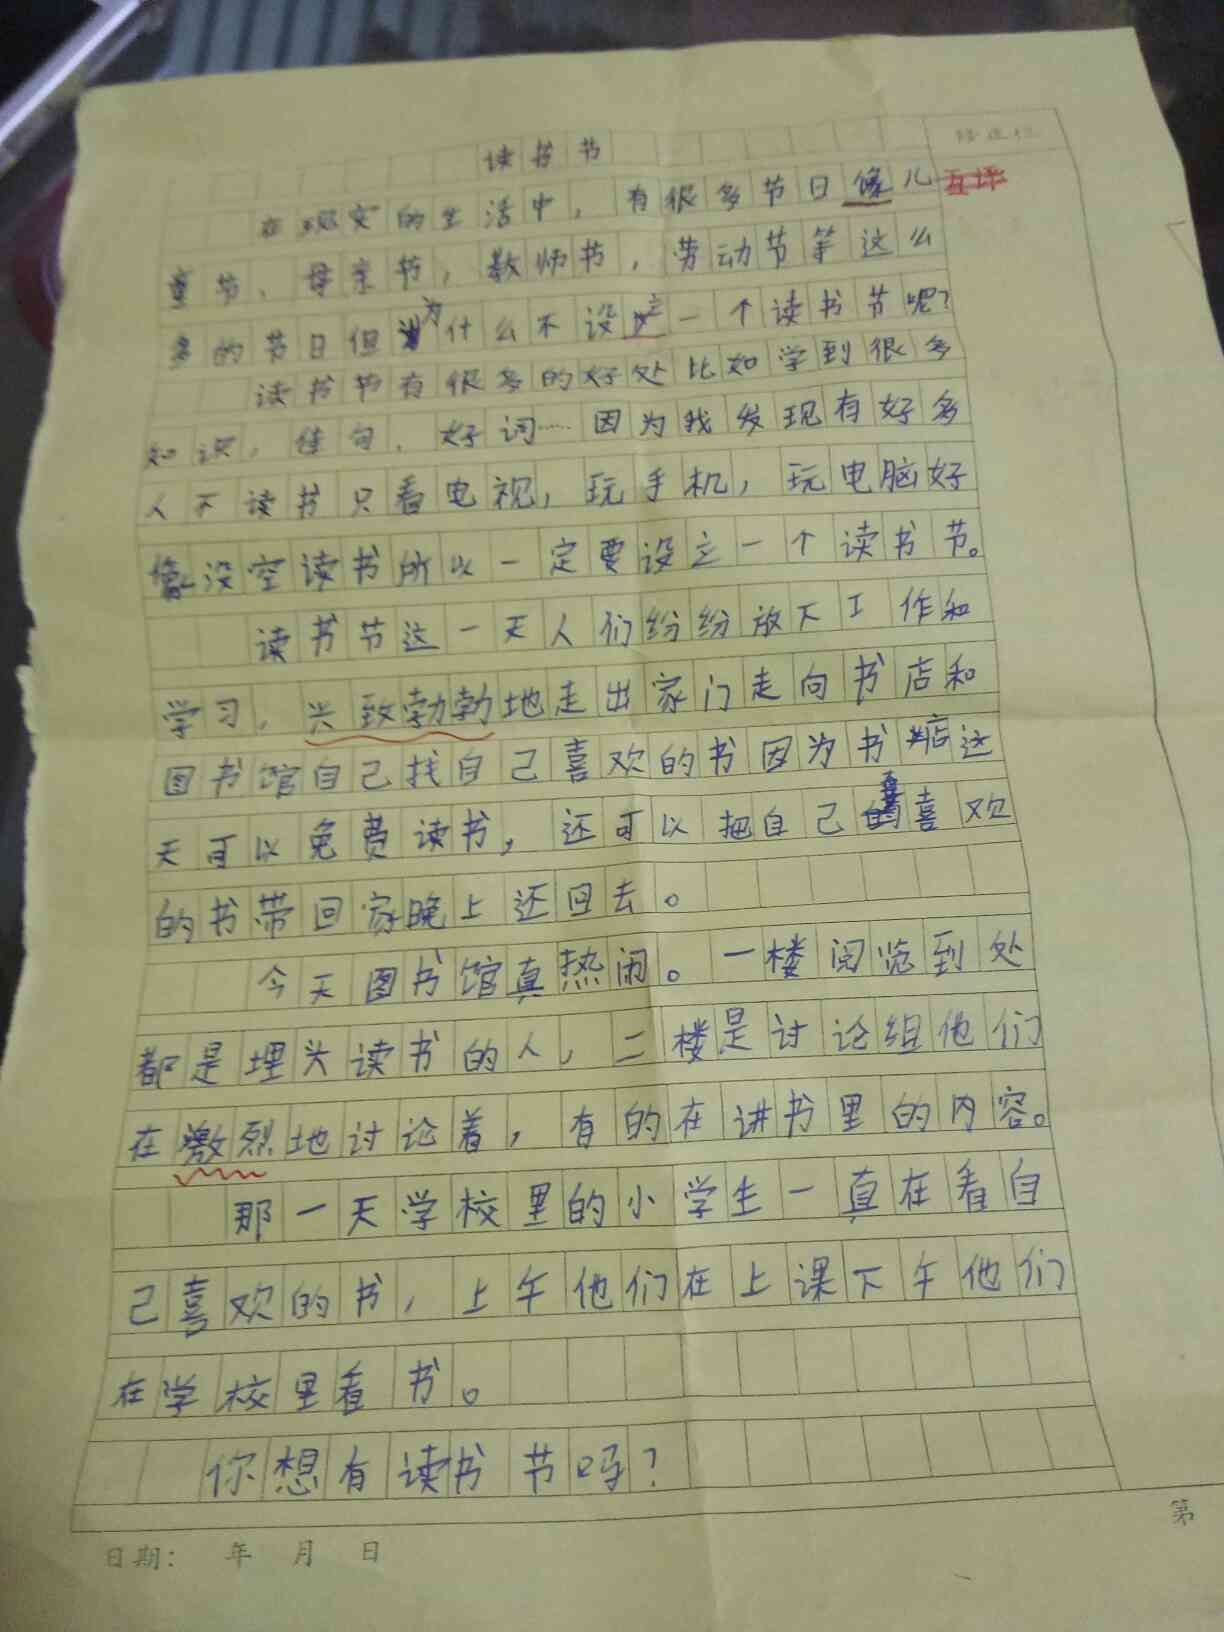 读书节
在现实的生活中，有很多节日像儿
童节、母亲节，教师节，劳动节等这么
多的节日但为什么不设立一个读书节呢？
读书节有很多的好处比如学到很多
知识，佳句、好词……因为我发现有好多
人不读书只看电视，玩手机，玩电脑好
像没空读书所以一定要设立一个读书节。
读书节这一天人们纷纷放下工作和
学习，兴致勃勃地走出家门走向书店和
图书馆自己找自己喜欢的书因为书店这
天可以免费读书，还可以把自己喜欢
的书带回家晚上还回去。
今天图书馆真热闹。一楼阅览到处
都是埋头读书的人，二楼是讨论组他们
在激烈地讨论着，有的在讲书里的内容。
那一天学校里的小学生一直在看自
己喜欢的书，上午他们在上课下午他们
在学校里看书。
你想有读书节吗？
日期：　年　月　日
第